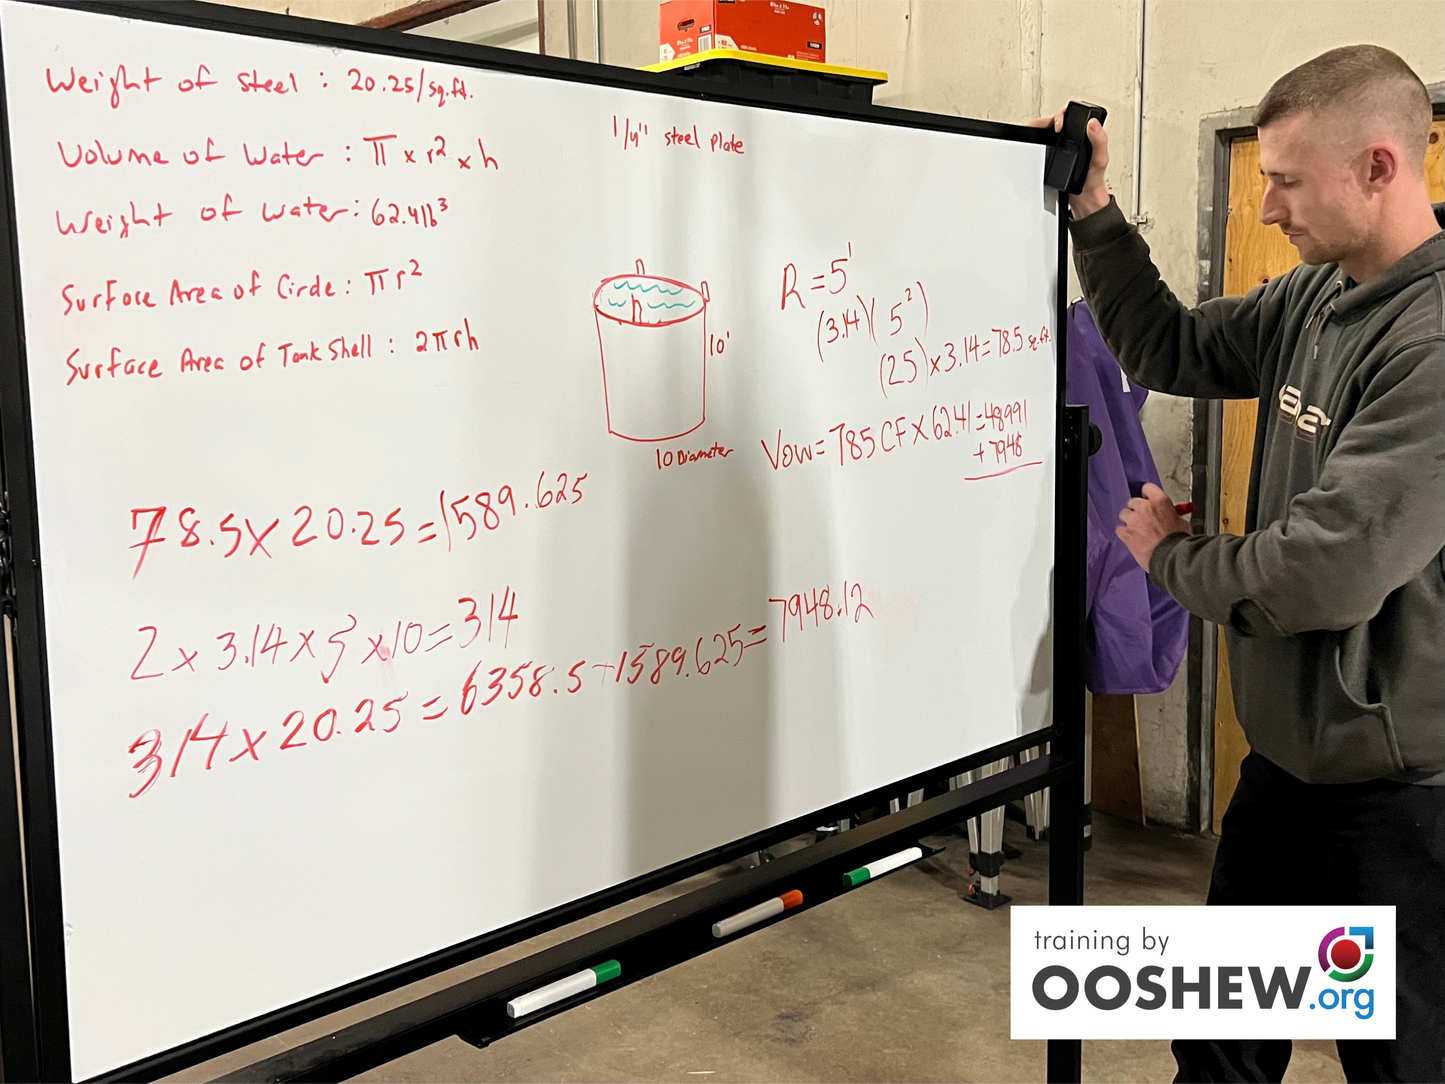 Weight of steel : 20.25/sq.ft.
Volume of Water : π x r² x h
Weight of water: 62.41lb³
Surface Area of Circle: π r²
Surface Area of Tank Shell : 2πrh
1/4" steel plate
10'
10 Diameter
R = 5'
(3.14)(5²)
(25) x 3.14 = 78.5 sq.ft.
VOW = 785 CF X 62.41 = 48991
+ 7948
78.5 x 20.25 = 1589.625
2 x 3.14 x 5 x 10 = 314
314 x 20.25 = 6358.5 + 1589.625 = 7948.12
training by
OOSHEW.org